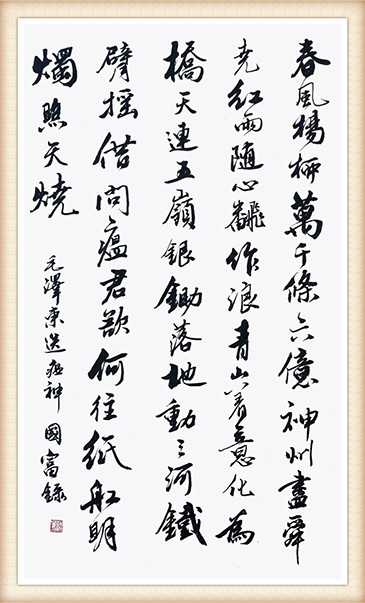 春風楊柳萬千條六億神州盡舜
尭紅雨隨心飜作浪青山着意化為
橋天連五嶺銀鋤落地動三河鐵
臂摇借問瘟君欲何往紙船明
燭照天燒
毛澤東送瘟神 國富錄